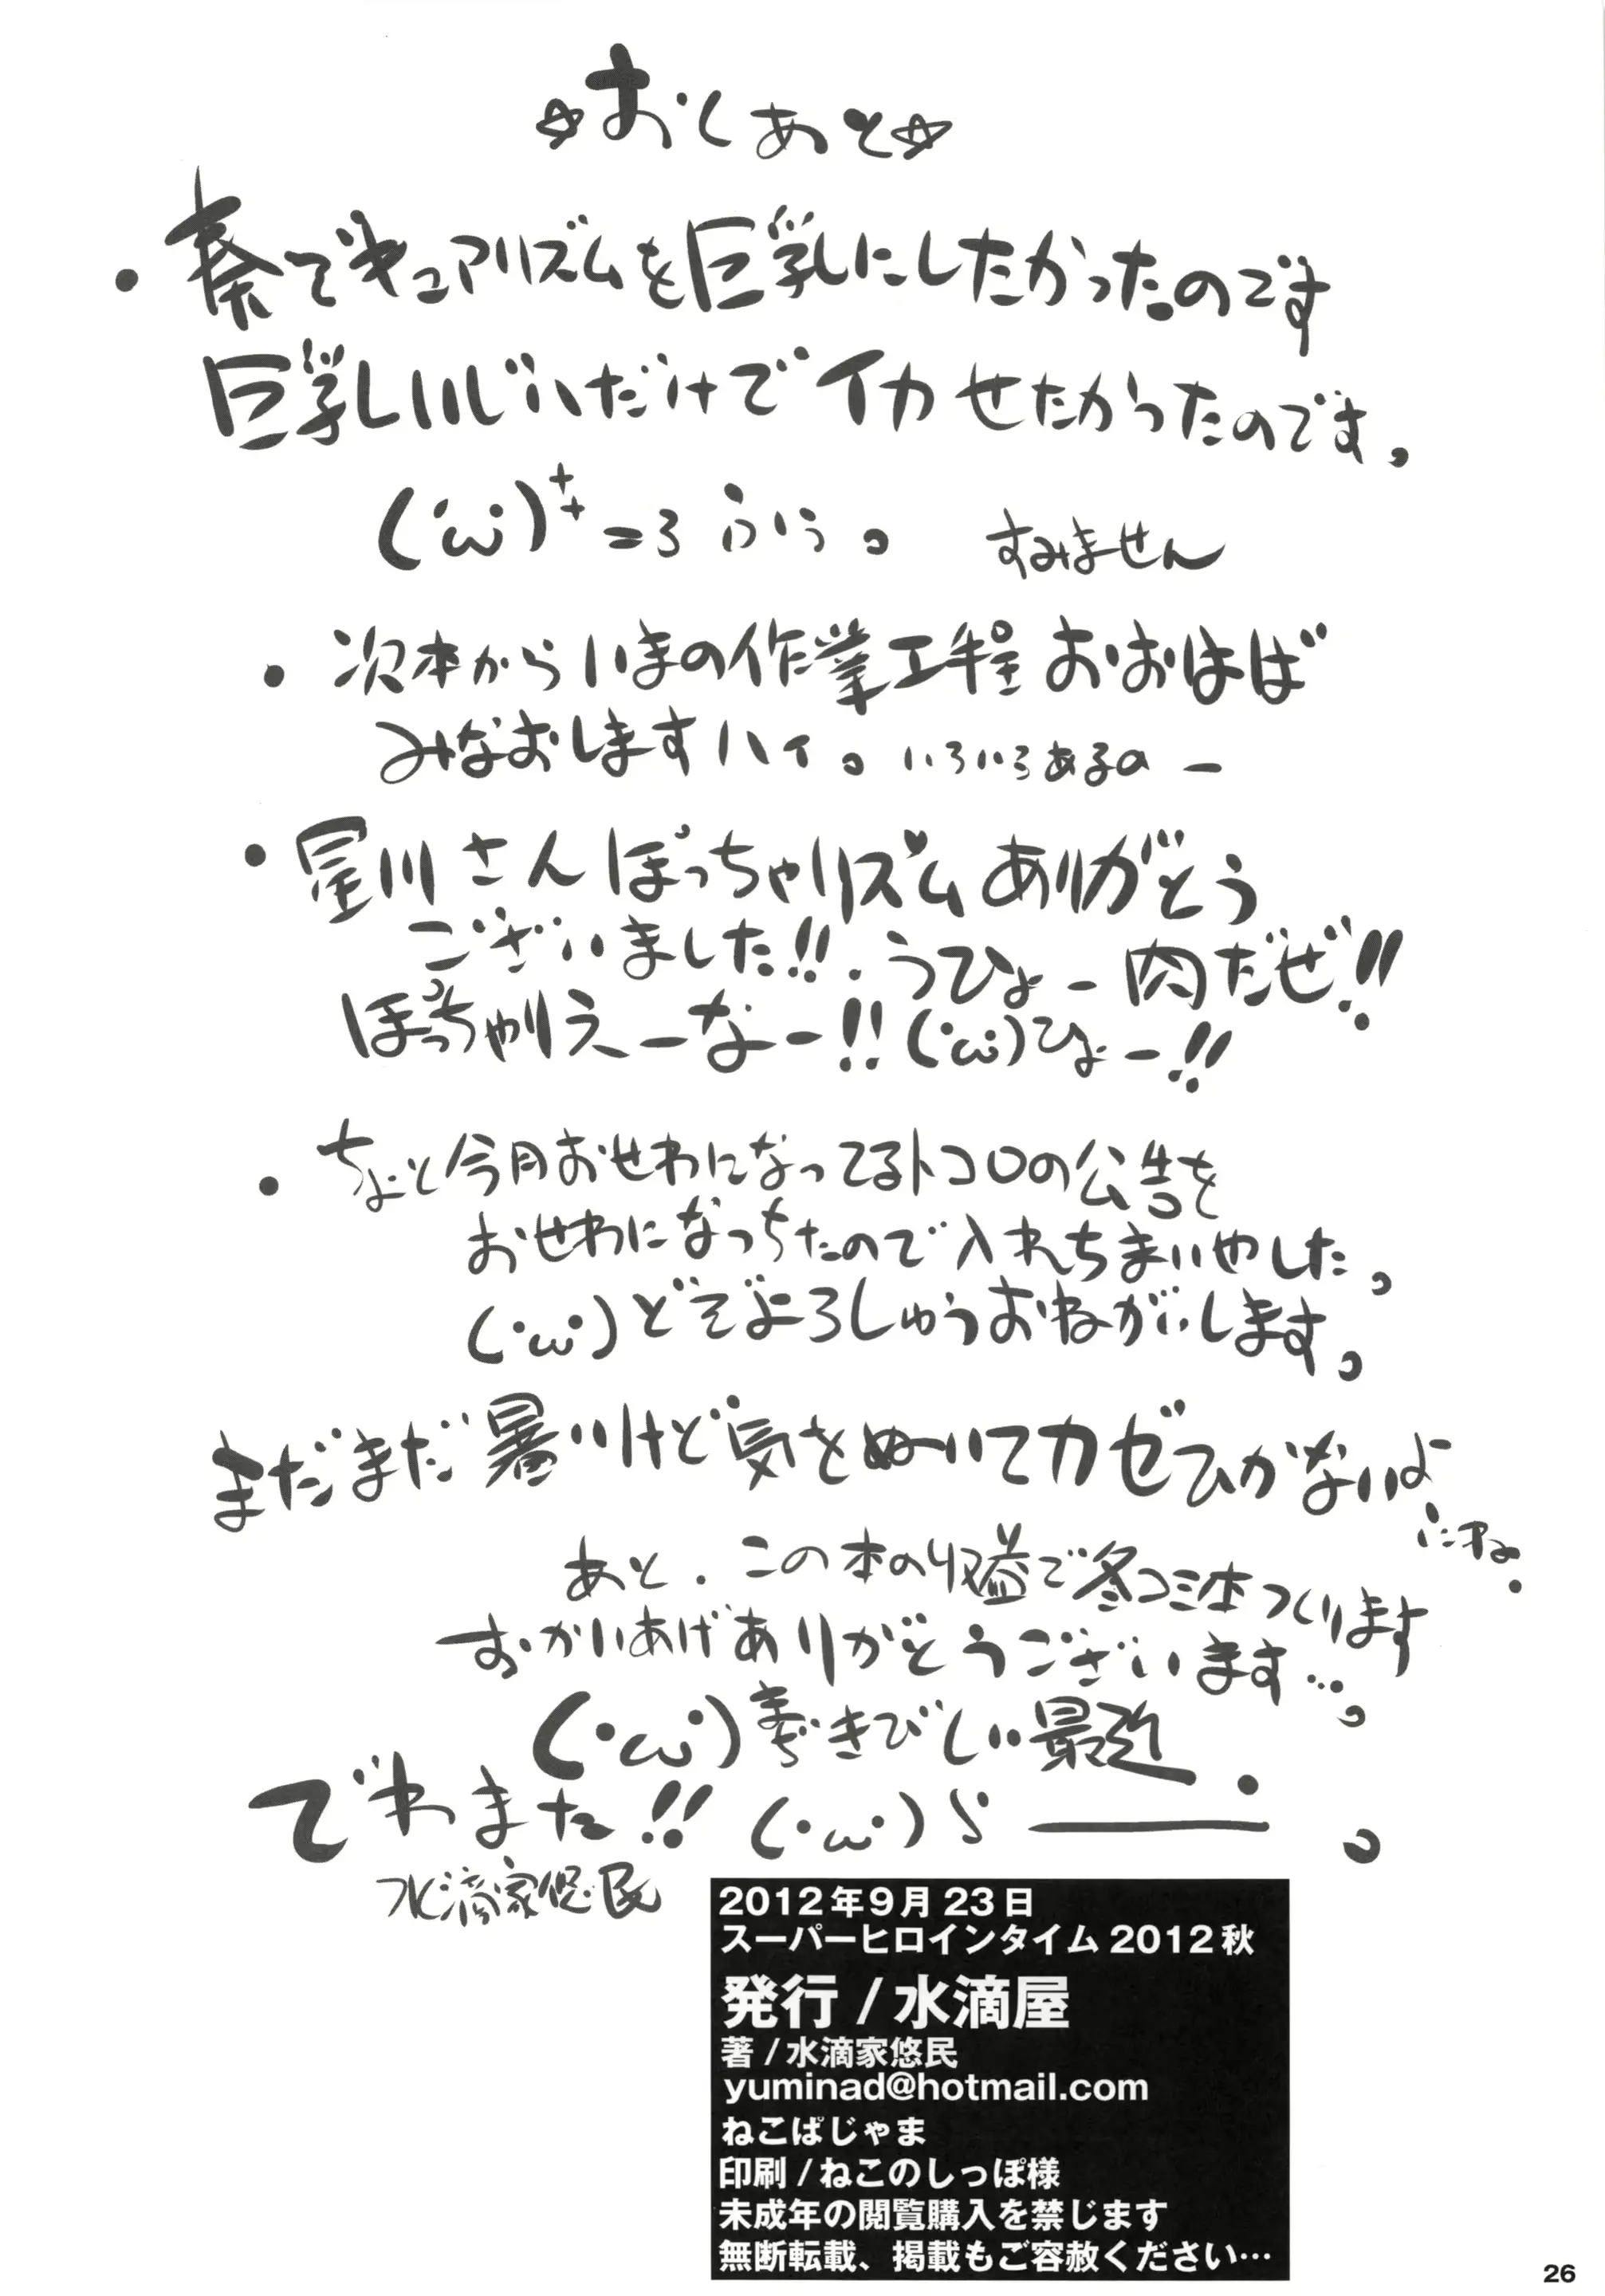 ☆おしあと☆
・奏でキュアリズムを巨乳にしたかったのです
巨乳いじいだけでイカせたかったのです。
(´ω`)++=3 ふぃぅ。 すみません
・次本からいまの作業工程おおはば
みなおしますハイ。いろいろあるのー
・星川さんぽっちゃりズムありがとう
ございました!!。うひょー肉だぜ!!
ぽっちゃりえーなー!!(・ω・)ひょー!!
・ちょと今月おせわになってるトコロの公告を
おせわになっちたので入れちまいやした。
(・ω・)どぞよろしゅうおねがいします。
まだまだ暑いけど気をぬいてカゼひかないよ
にね.
あと.この本の収益で冬コミ本つくります
おかいあげありがとうございます…。
(・ω・)きびしい最近
でわまた!!(・ω・)ゝ―――。
水滴家悠民
2012年9月23日
スーパーヒロインタイム2012秋
発行/水滴屋
著/水滴家悠民
yuminad@hotmail.com
ねこぱじゃま
印刷/ねこのしっぽ様
未成年の閲覧購入を禁じます
無断転載、掲載もご容赦ください…
26